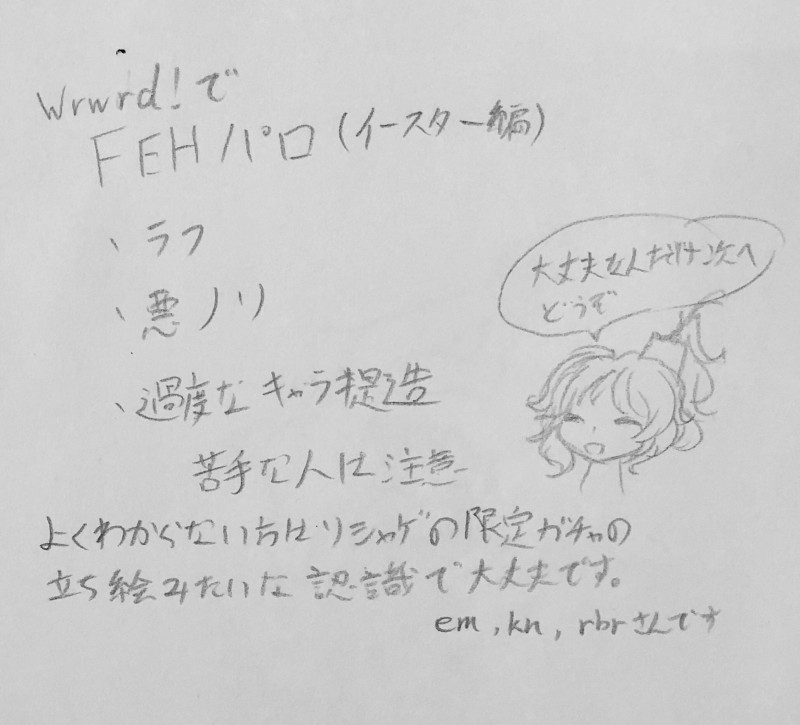 wrwrd!で
FEHパロ(イースター編)
、ラフ
、悪ノリ
、過度なキャラ捏造
苦手な人は注意
大丈夫な人だけ次へ
どうぞ
よくわからない方はソシャゲの限定ガチャの
立ち絵みたいな認識で大丈夫です。
em,kn,rbrさんです